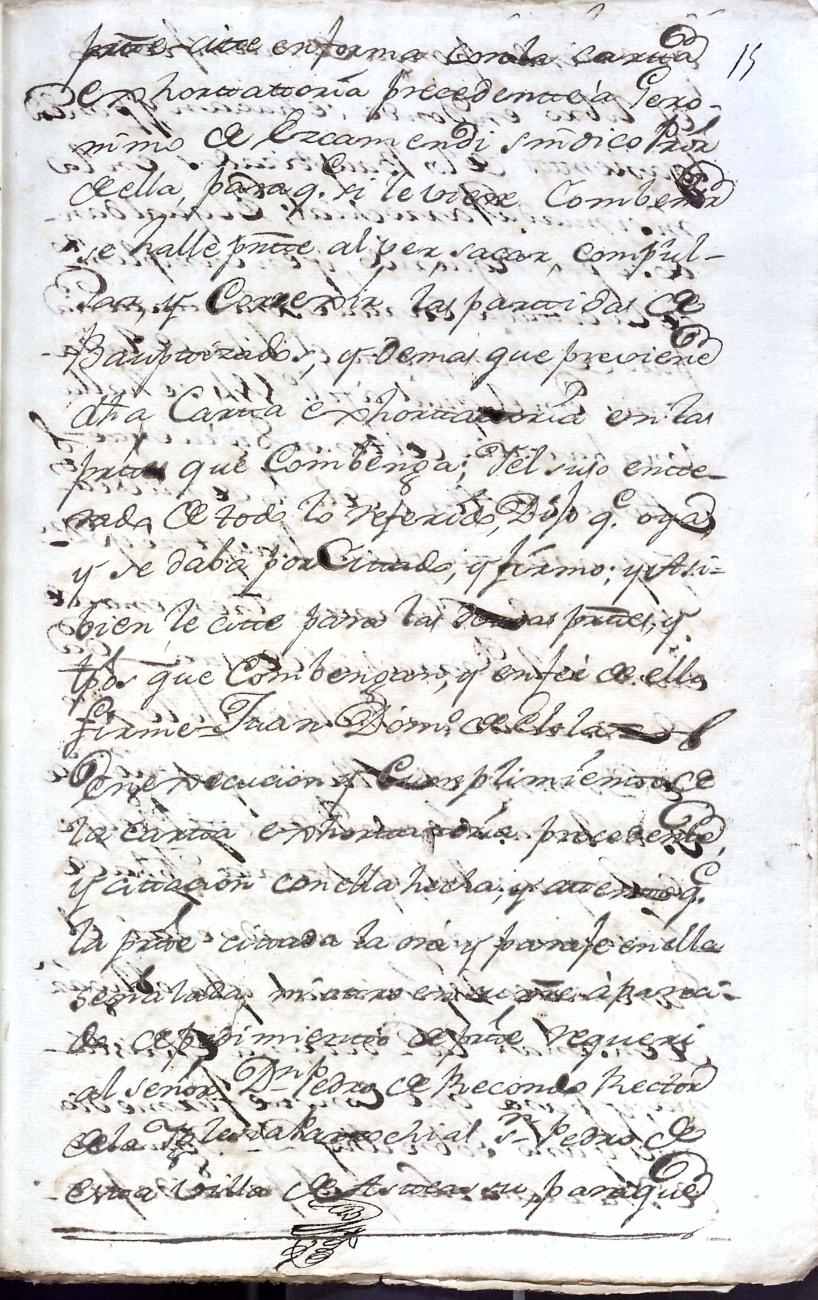 15
prȇte cite en forma con la carta
exhorttattoria precedentte à Gero-
nimo de Ezcamendi sindico Prõr
de ella, para q.e si le viere Combenir
se halle prñte al ver sacar, compul-
sar, y Correxir las parttidas de
Bauptizados, y demas que previene
dha Cartta exhorttattoria en las
prttes que Combenga; Y el suso entte-
rado de todo lo referido, Dijo q.e oya,
y se daba por Cittado, y firmo; y Asi-
bien le citte para las demas prttes, y
tpos que Combengan, y en feè de ello
firme = Juan Dom.o de Elola =
En execucion y Cumplimientto de
la cartta exhorttattoria precedente,
y cittacion con ella hecha, y attentto q.e
la prtte cittada la ora y paraje en ella
señalada, ni attro en su nre à pareci-
do de pedimientto de prtte requeri
al señor Dn Pedro de Recondo Rector
de la Iglesia Parrochial Sn Pedro de
esta Villa de Asteasu, para que